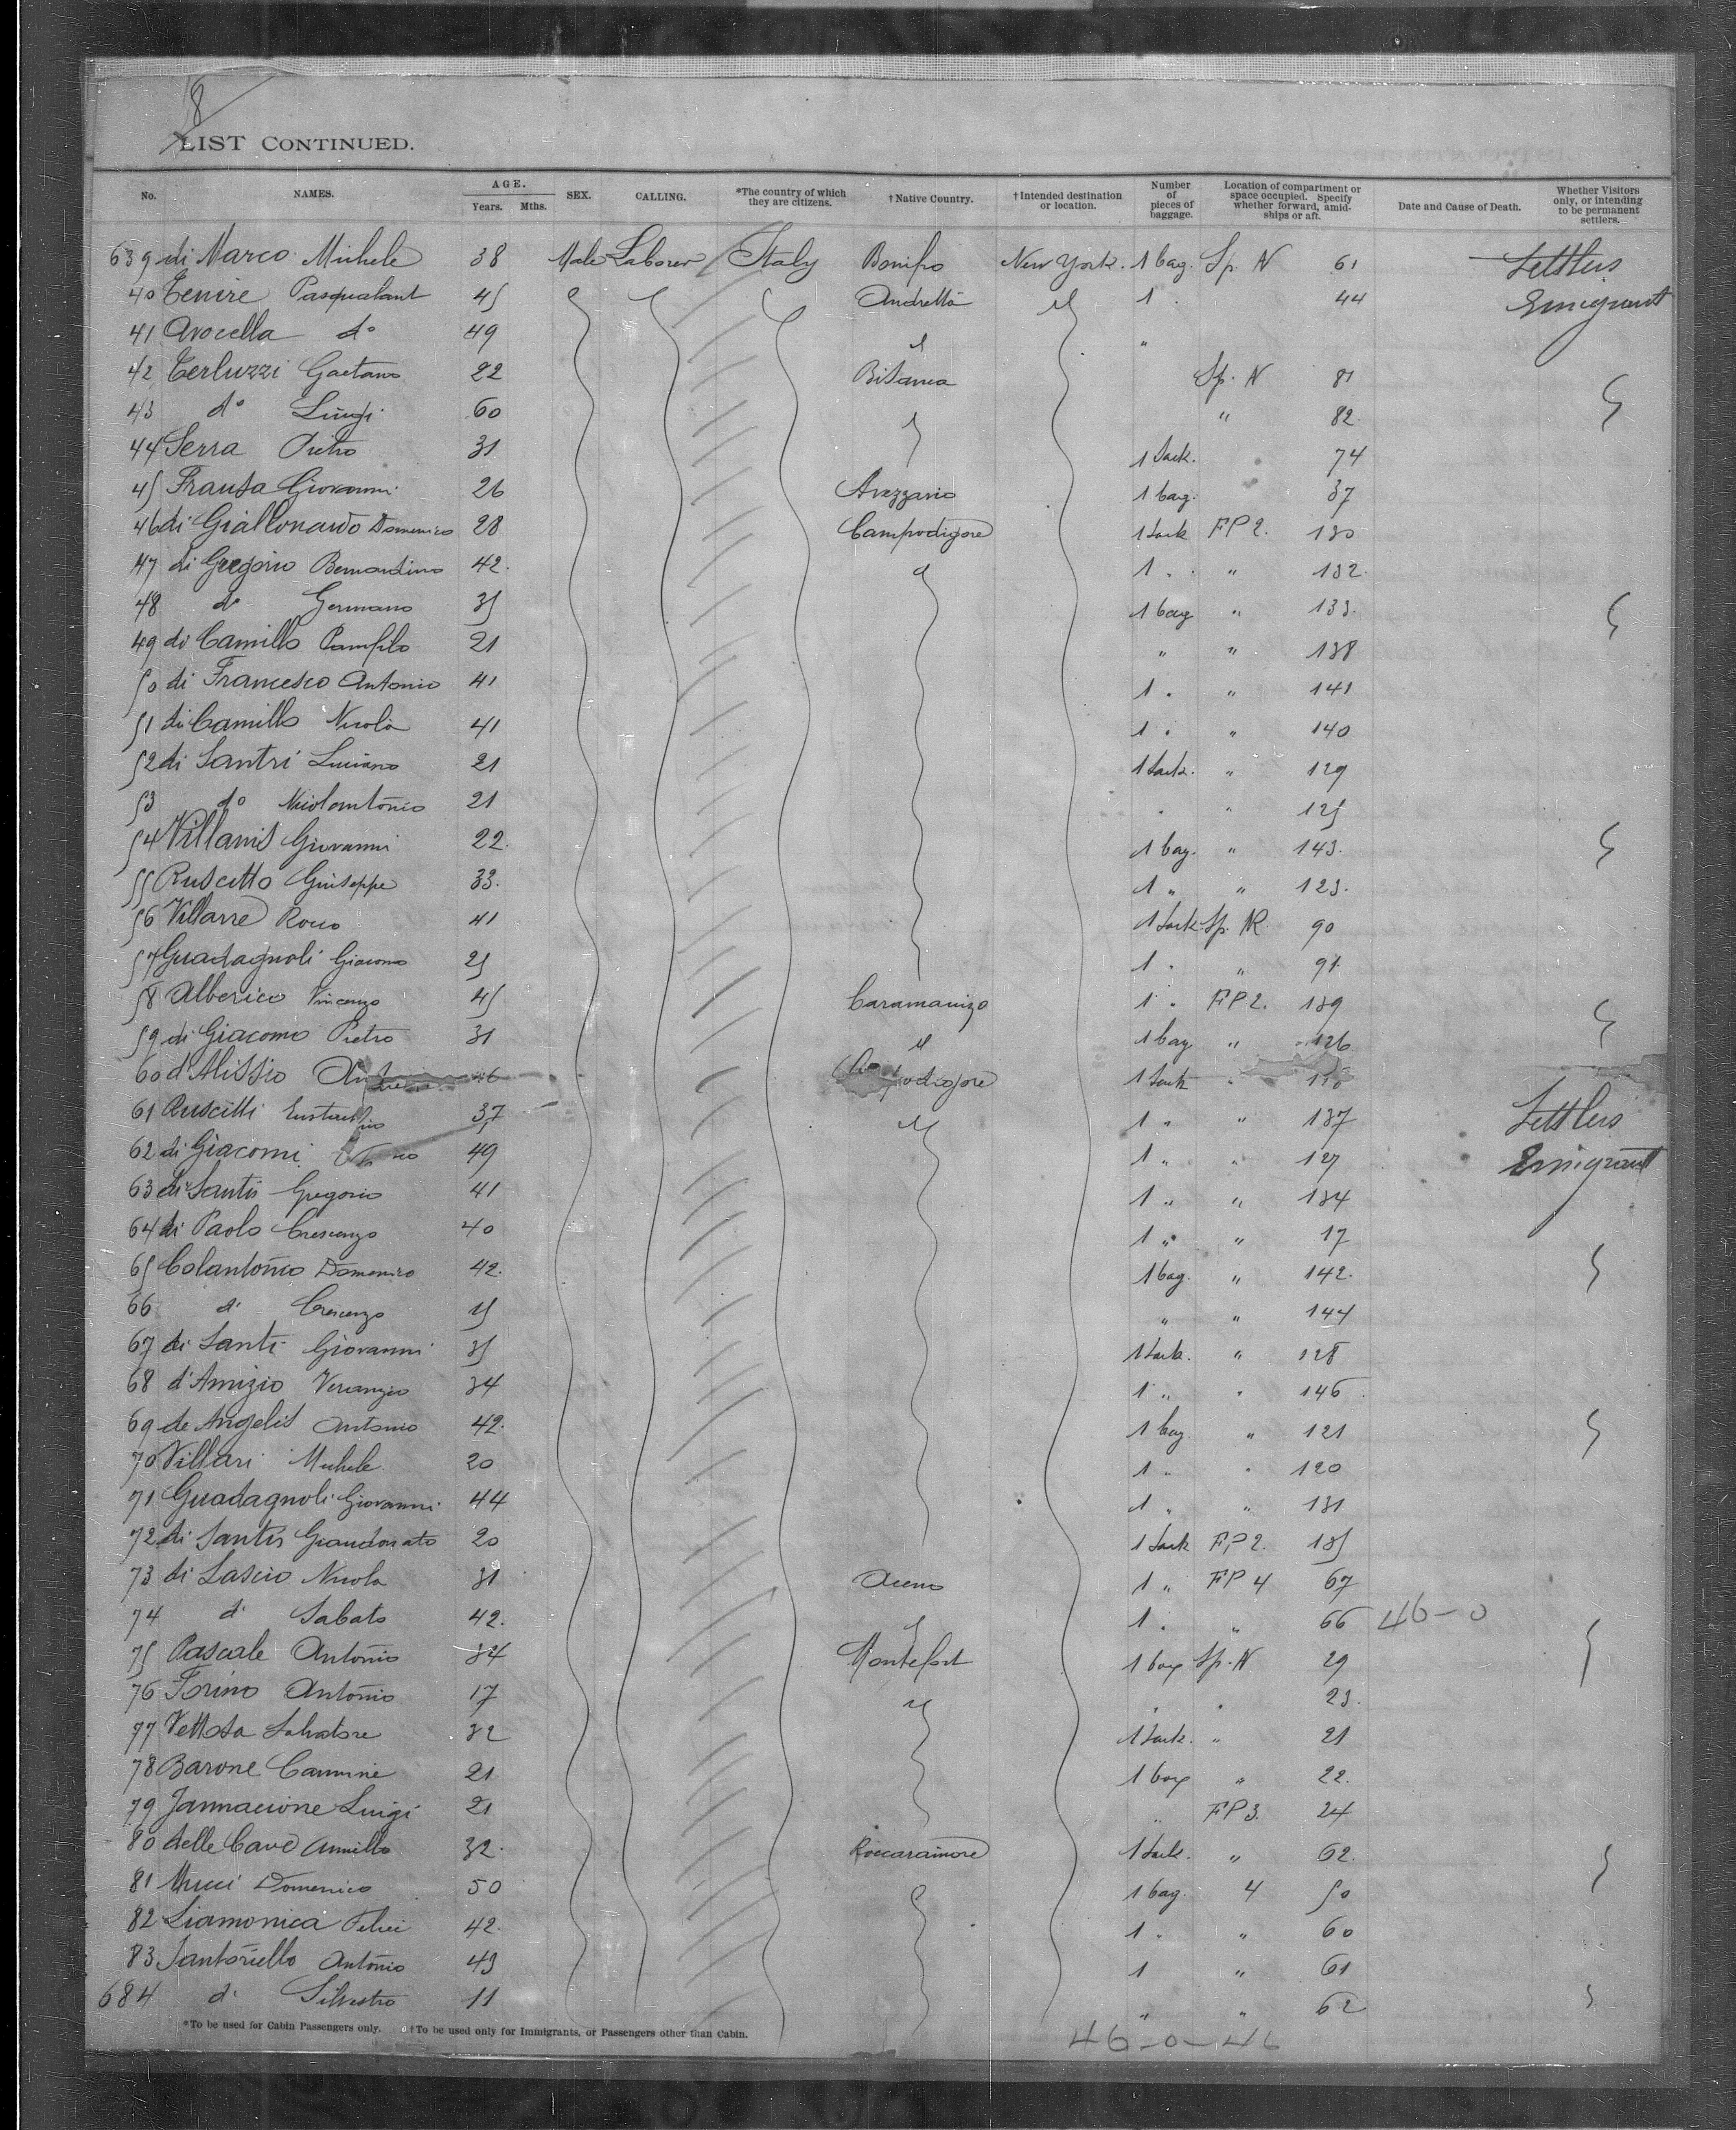 8
LIST CONTINUED.
No. NAMES. AGE. Years. Mths. SEX. CALLING. *The country of which they are citizens. †Native Country. †Intended destination or location. Number of pieces of baggage. Location of compartment or space occupied. Specify whether forward, amidships or aft. Date and Cause of Death. Whether Visitors only, or intending to be permanent settlers.
639 di Marco Michele 38 Male Laborer Italy New York. 1 bag. Sp. N 61 Settlers
40 Tenire Pasqualant 45 Andretta 1 44 Emigrant
41 Avocella do 49 "
42 Terluzzi Gaetano 22 Sp. N 81
43 do Luigi 60 " 82
44 Serra Pietro 31 1 Sack. 74
45 Giovanni 26 Avezzano 1 bag. 37
46 di Giallonardo Domenico 28 Campodigiove 1 Sack FP 2. 130
47 di Gregorio Bernardino 42. 1 . " 132.
48 do Germano 35 1 bag " 133.
49 di Camillo Panfilo 21 " " 138
50 di Francesco Antonio 41 1 . " 141
51 di Camillo Nicola 41 1 . " 140
52 di Santri Luciano 21 1 Sack. " 129
53 do Nicolantonio 21 " " 125
54 Villanis Giovanni 22. 1 bag. " 143.
55 Ruscitto Giuseppe 33. 1 " " 123.
56 Villarre Rocco 41 1 Sack Sp. N. 90
57 Guadagnoli Giacomo 25 1 . " 91
58 Alberico Vincenzo 45 1 . FP 2. 139
59 di Giacomo Pietro 31 1 bag " 126
60 d'Alissio 1 Sack "
61 Ruscitti Eustachio 37 1 " " 137 Settlers
62 di Giacomi 49 1 " " 127 Emigrant
63 di Santis Gregorio 41 1 " " 134
64 di Paolo Crescenzo 40 1 " " 17
65 Colantonio Domenico 42. 1 bag. " 142.
66 d. Crescenzo 15 " " 144
67 di Santi Giovanni 35 1 Sack. " 128
68 d'Amizio Venanzio 34 1 " " 146
69 de Angelis Antonio 42. 1 bag " 121
70 Villari Michele 20 1 " " 120
71 Guadagnoli Giovanni 44 1 " " 131
72 di Santis Giandonato 20 1 Sack FP 2. 135
73 di Lascio Nicola 31 1 " FP 4 67
74 d. Sabato 42. 1 . " 66 46-0
75 Pascale Antonio 34 Montefort 1 bag Sp. N. 29
76 Forino Antonio 17 " " 23.
77 Vettosa Salvatore 32 1 Sack. " 21
78 Barone Carmine 21 1 bag " 22.
79 Jannacione Luigi 21 " FP 3. 24
80 delle Cave Aniello 32. Roccarainore 1 Sack. " 62.
81 Mucci Domenico 50 1 bag. 4 50
82 Liamonica Felici 42. 1 " " 60
83 Santoriello Antonio 43 1 " 61
684 d. Silvestro 11 " " 62
*To be used for Cabin Passengers only. †To be used only for Immigrants, or Passengers other than Cabin.
46-0-46